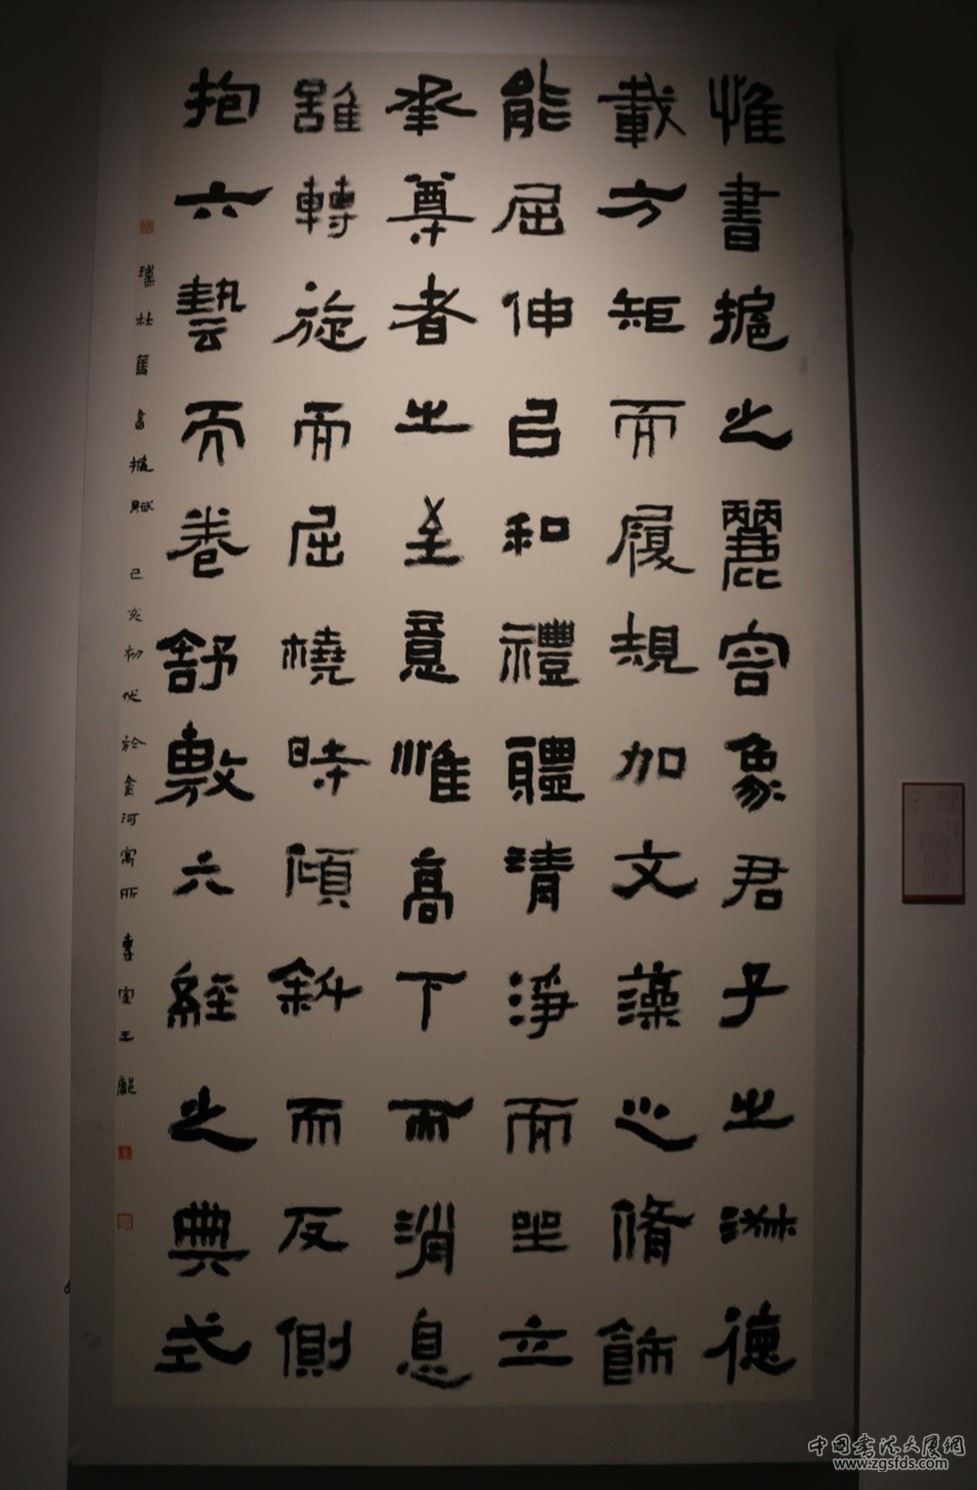 惟書摣之麗容象君子之淑德
載方矩而履規加文藻心脩飾
能屈伸㠯和禮體清淨而坐立
承尊者之至意惟高下而消息
雖轉旋而屈橈時傾斜而反側
抱六藝而卷舒敷六經之典式
漢杜篤書摣賦 己亥初伏於金河寓所
中国书法大厦网
www.zgsfds.com